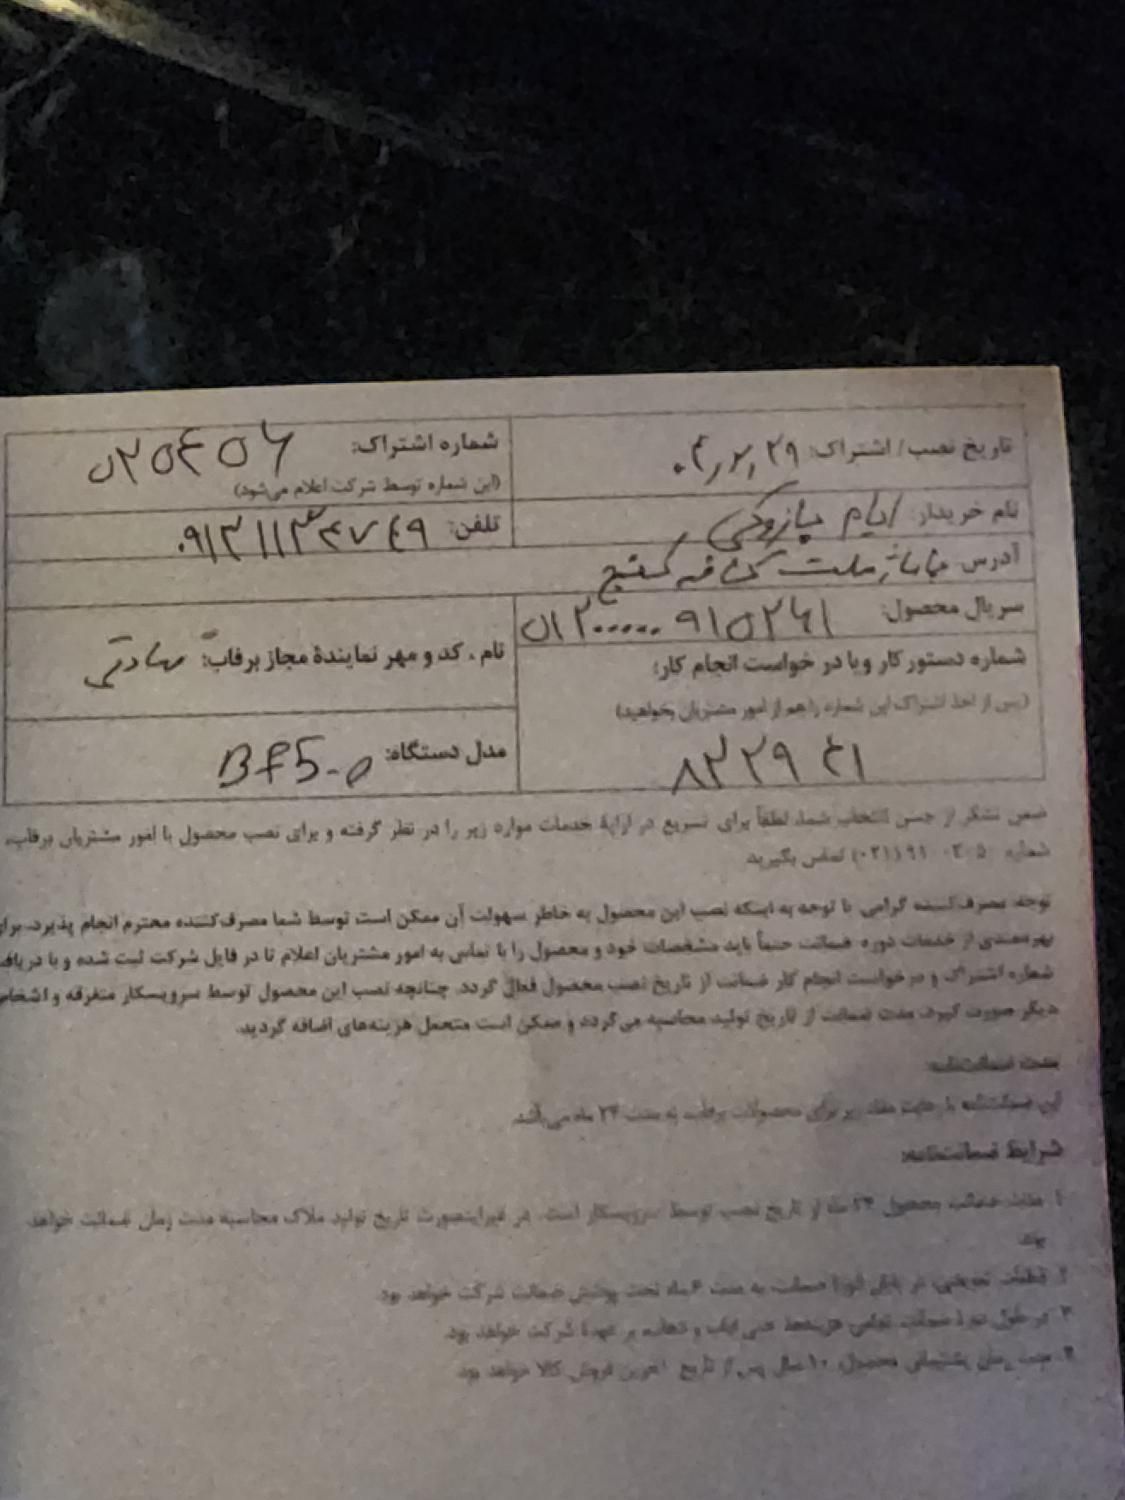 تاریخ نصب/ اشتراک: ۰۴,۲,۲۹
شماره اشتراک: ۵۲۵۴۵۶
(این شماره توسط شرکت اعلام می‌شود)
نام خریدار:
تلفن:
آدرس:
سریال محصول: ۵۱۲۰۰۰۰۰۹۱۵۲۶۱
نام، کد و مهر نمایندهٔ مجاز برفاب:
شماره دستور کار و یا در خواست انجام کار:
(پس از اخذ اشتراک این شماره را هم از امور مشتریان بخواهید)
۸۲۲۹۴۱
مدل دستگاه: BF5-0
ضمن تشکر از حسن انتخاب شما، لطفاً برای تسریع در ارایهٔ خدمات موارد زیر را در نظر گرفته و برای نصب محصول با امور مشتریان برفاب،
شماره تماس بگیرید.
توجه: مصرف‌کننده گرامی، با توجه به اینکه نصب این محصول به خاطر سهولت آن ممکن است توسط شما مصرف‌کننده محترم انجام پذیرد، برای
بهره‌مندی از خدمات دوره ضمانت حتماً باید مشخصات خود و محصول را با تماس به امور مشتریان اعلام تا در فایل شرکت ثبت شده و با
شماره اشتراک و درخواست انجام کار ضمانت از تاریخ نصب محصول فعال گردد. چنانچه نصب این محصول توسط سرویسکار متفرقه و
دیگر صورت گیرد، مدت ضمانت از تاریخ تولید محاسبه می‌گردد و ممکن است متحمل هزینه‌های اضافه گردید.
مدت ضمانت‌نامه:
این ضمانت‌نامه با رعایت مفاد زیر برای محصولات برفاب به مدت ۲۴ ماه می‌باشد.
شرایط ضمانت‌نامه:
۱. مدت ضمانت محصول ۲۴ ماه از تاریخ نصب توسط سرویسکار است. در غیراینصورت تاریخ تولید ملاک محاسبه مدت زمان ضمانت خواهد
بود.
۲. قطعات تعویضی در پایان دورهٔ ضمانت، به مدت ۶ ماه تحت پوشش ضمانت شرکت خواهد بود.
۳. در طول دورهٔ ضمانت تمامی هزینه‌های ایاب و ذهاب بر عهدهٔ شرکت خواهد بود.
۴. مدت زمان پشتیبانی محصول، ۱۰ سال پس از تاریخ آخرین فروش کالا خواهد بود.